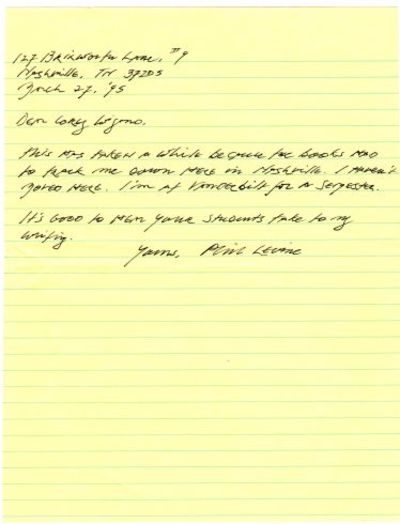 127 Brinkworth Lane, #9
Nashville, TN 37205
March 27, '95
Dear Corey
This has taken a while because the books had
to track me down here in Nashville. I haven't
moved here. I'm at Vanderbilt for a semester.
It's good to hear your students take to my
writing.
Yours, Phil Levine